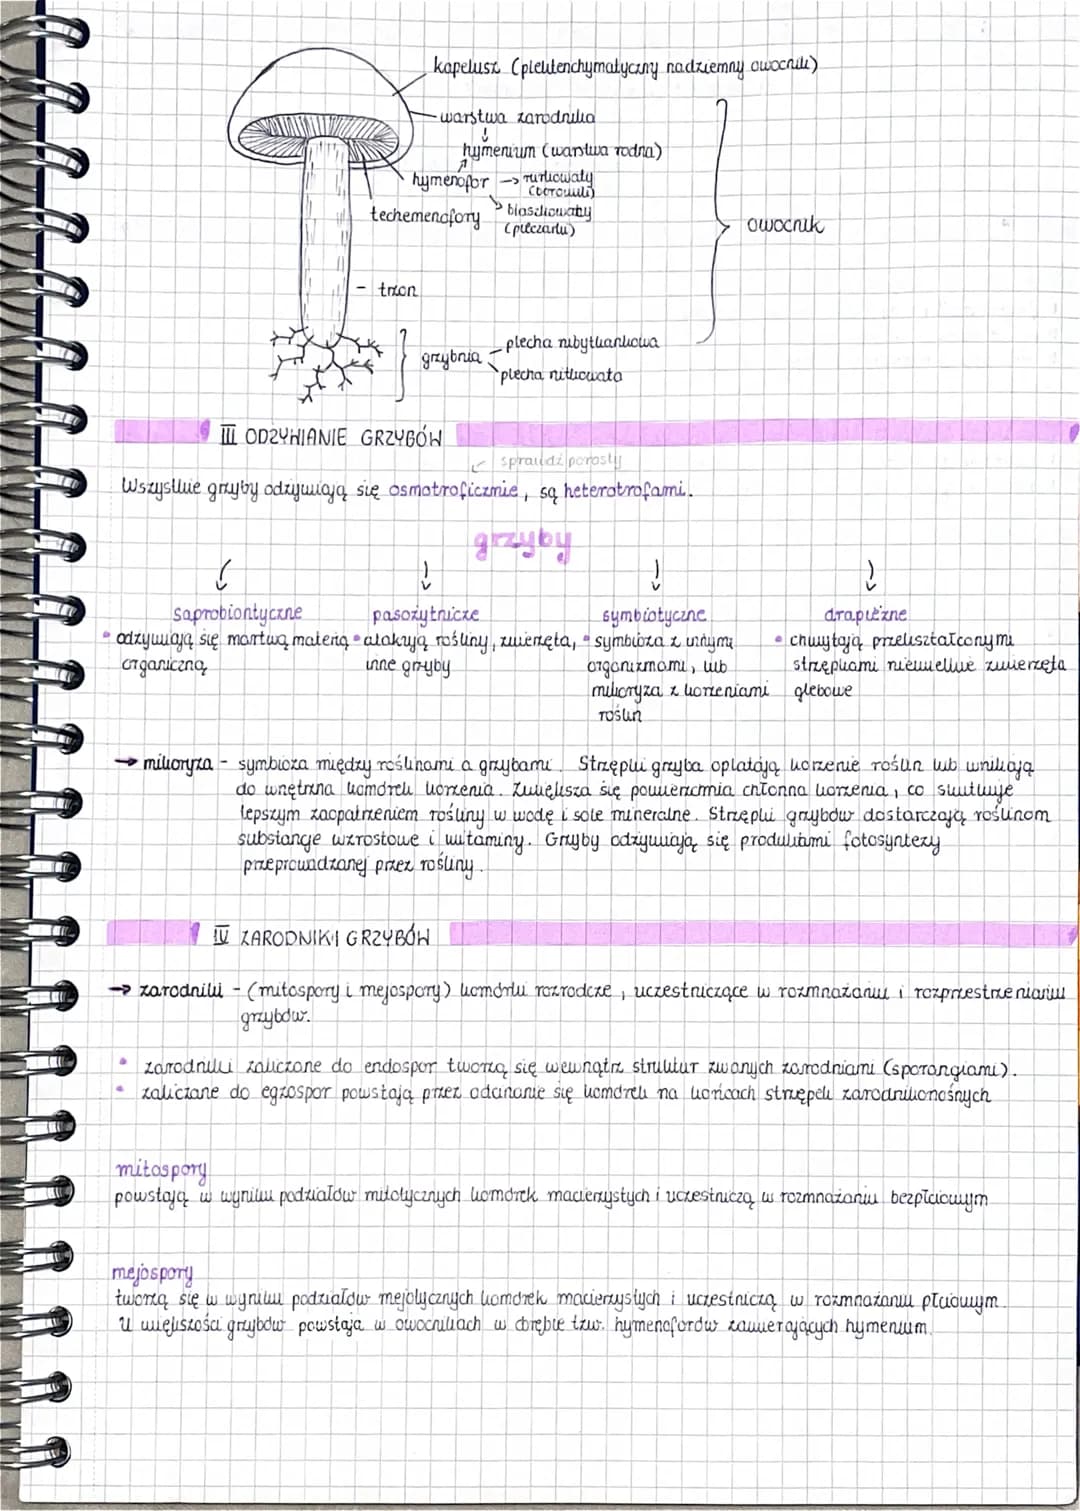 kapelusz (plektenchymatyczny nadziemny owocnik)
warstwa zarodnika
↓
hymenium (warstwa rodna)
hymenofor → rurkowaty (borowik)
↘ blaszkowaty (pieczarki)
techemenofory
owocnik
- trzon
grzybnia
plecha nibytkankowa
plecha nitkowata
III ODŻYWIANIE GRZYBÓW
sprawdź porosty
Wszystkie grzyby odżywiają się osmotroficznie, są heterotrofami.
grzyby
saprobiontyczne
• odżywiają się martwą materią
organiczną
pasożytnicze
• atakują rośliny, zwierzęta,
inne grzyby
symbiotyczne
• symbioza z innymi
organizmami, lub
mikoryza z korzeniami
roślin
drapieżne
• chwytają przekształconymi
strzępkami niewielkie zwierzęta
glebowe
→ mikoryza - symbioza między roślinami a grzybami. Strzępki grzyba oplatają korzenie roślin lub wnikają
do wnętrza komórek korzenia. Zwiększa się powierzchnia chłonna korzenia, co skutkuje
lepszym zaopatrzeniem rośliny w wodę i sole mineralne. Strzępki grzybów dostarczają roślinom
substancje wzrostowe i witaminy. Grzyby odżywiają się produktami fotosyntezy
przeprowadzanej przez rośliny.
IV ZARODNIKI GRZYBÓW
→ zarodniki - (mitospory i mejospory) komórki rozrodcze, uczestniczące w rozmnażaniu i rozprzestrzenianiu
grzybów.
• zarodniki zaliczane do endospor tworzą się wewnątrz struktur zwanych zarodniami (sporangiami).
• zaliczane do egzospor powstają przez odcinanie się komórek na końcach strzępek zarodnikonośnych
mitospory
powstają w wyniku podziałów mitotycznych komórek macierzystych i uczestniczą w rozmnażaniu bezpłciowym
mejospory
tworzą się w wyniku podziałów mejotycznych komórek macierzystych i uczestniczą w rozmnażaniu płciowym.
U większości grzybów powstają w owocnikach w obrębie tzw. hymenoforów zawierających hymenium.